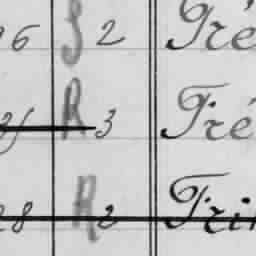 26 S 2 Tré
R 3 Tré
28 R 2 Trin